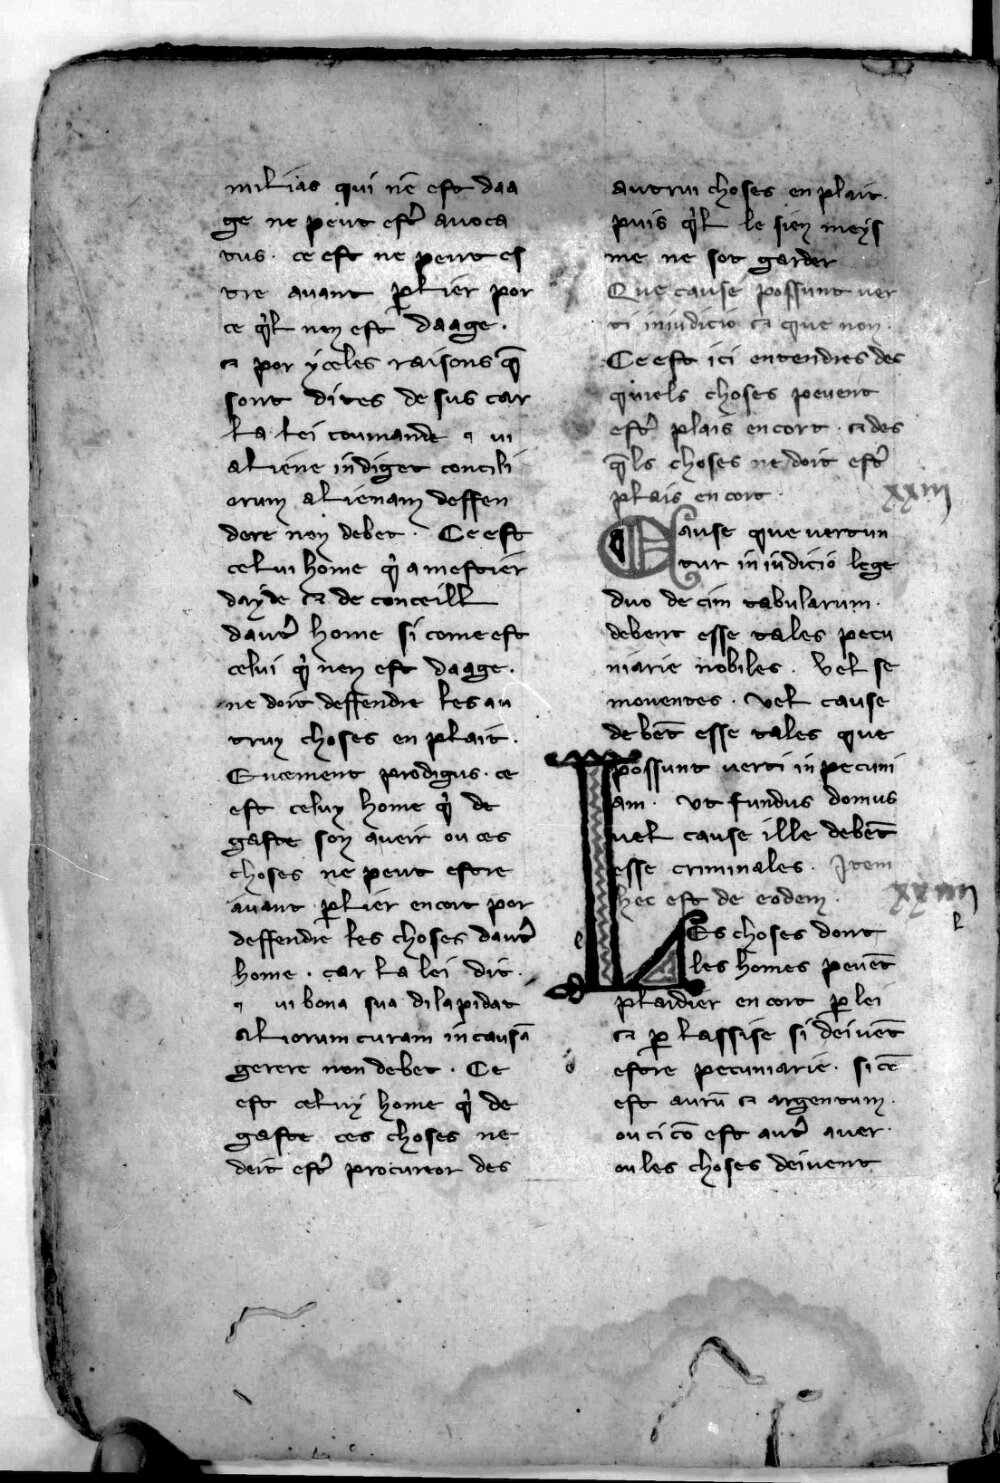 milias qui nē est daa
ge ne peut estr̉ auoca
tus · ce est ne peut es
tre auant ꝑlier por
ce q̉l non est daage ·
⁊ por yceles raisons q̄
sont dites de sus car
la lei coumande ꝗ ui
aliene indiget concili
orum alienam deffen
dere non debet · Ce est
celui home q̉ a mestier
dayde ⁊ de conceill
dautr̉ home si come est
celui q̉ nen est daage ·
ne doit deffendre les au
truy choses en plait ·
Eucement prodigus · ce
est celuy home q̉ de
gaste son aueir ou ces
choses ne peut estre
auant ꝑlier encort por
deffendre les choses dautr̉
home · car la lei dit ·
ꝗ ui bona sua dilapidat
aliorum curam in causā
gerere non debet · Ce
est celuy home q̉ de
gaste ces choses ne
deit estr̉ procureor des
autrui choses en plait ·
puis q̉l le sien meys
me ne sot garder
Que cause possunt uer
ti iniudicio ⁊ que non ·
Ce est ici entendres des
quiels choses peuent
estr̉ plais encort · ⁊ des
q̄ls choses ne doit estr̉
plais en cort ·
xxiii
Cause que uertun
tur in iudicio lege
duo decim tabularum ·
debent esse tales pecu
niarie nobiles · vel se
mouentes · vel cause
debēt esse tales que
possunt uerti in pecuni
am · vt fundus domus
uel cause ille debēt
esse criminales · Item
hec est de eodem ·
xxiiii
l
LEs choses dont
les homes peuēt
plaidier en cort ꝑ lei
⁊ ꝑ lassise si deiuēt
estre pecuniarie · si cē
est aurū ⁊ argentum ·
ou ci cō est autr̉ auer ·
ou les choses deiuent